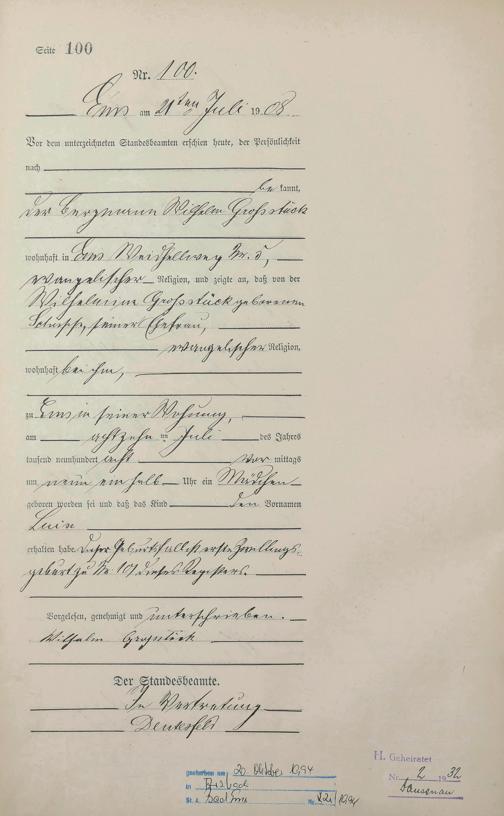 Seite 100
Nr. 100.
Ems am 21ten Juli 1908
Vor dem unterzeichneten Standesbeamten erschien heute, der Persönlichkeit
nach
bekannt,
der Bergmann Wilhelm Großstück
wohnhaft in Ems
evangelischer Religion, und zeigte an, daß von der
Wilhelmine Großstück geborenen
seiner Ehefrau,
evangelischer Religion,
wohnhaft bei ihm,
zu Ems in seiner Wohnung,
am achtzehn ten Juli des Jahres
tausend neunhundert acht Vor mittags
um neun ein halb Uhr ein Mädchen
geboren worden sei und daß das Kind den Vornamen
erhalten habe. Dieser Geburtsfall ist erste Zwillings-
geburt zu Nr 101 dieses Registers.
Vorgelesen, genehmigt und unterschrieben.
Wilhelm Großstück
Der Standesbeamte.
In Vertretung
gestorben am 20. Oktober 1994
in
St. A. Bad Ems Nr. /1994
H. Geheiratet
Nr. 2 1932
Dausenau